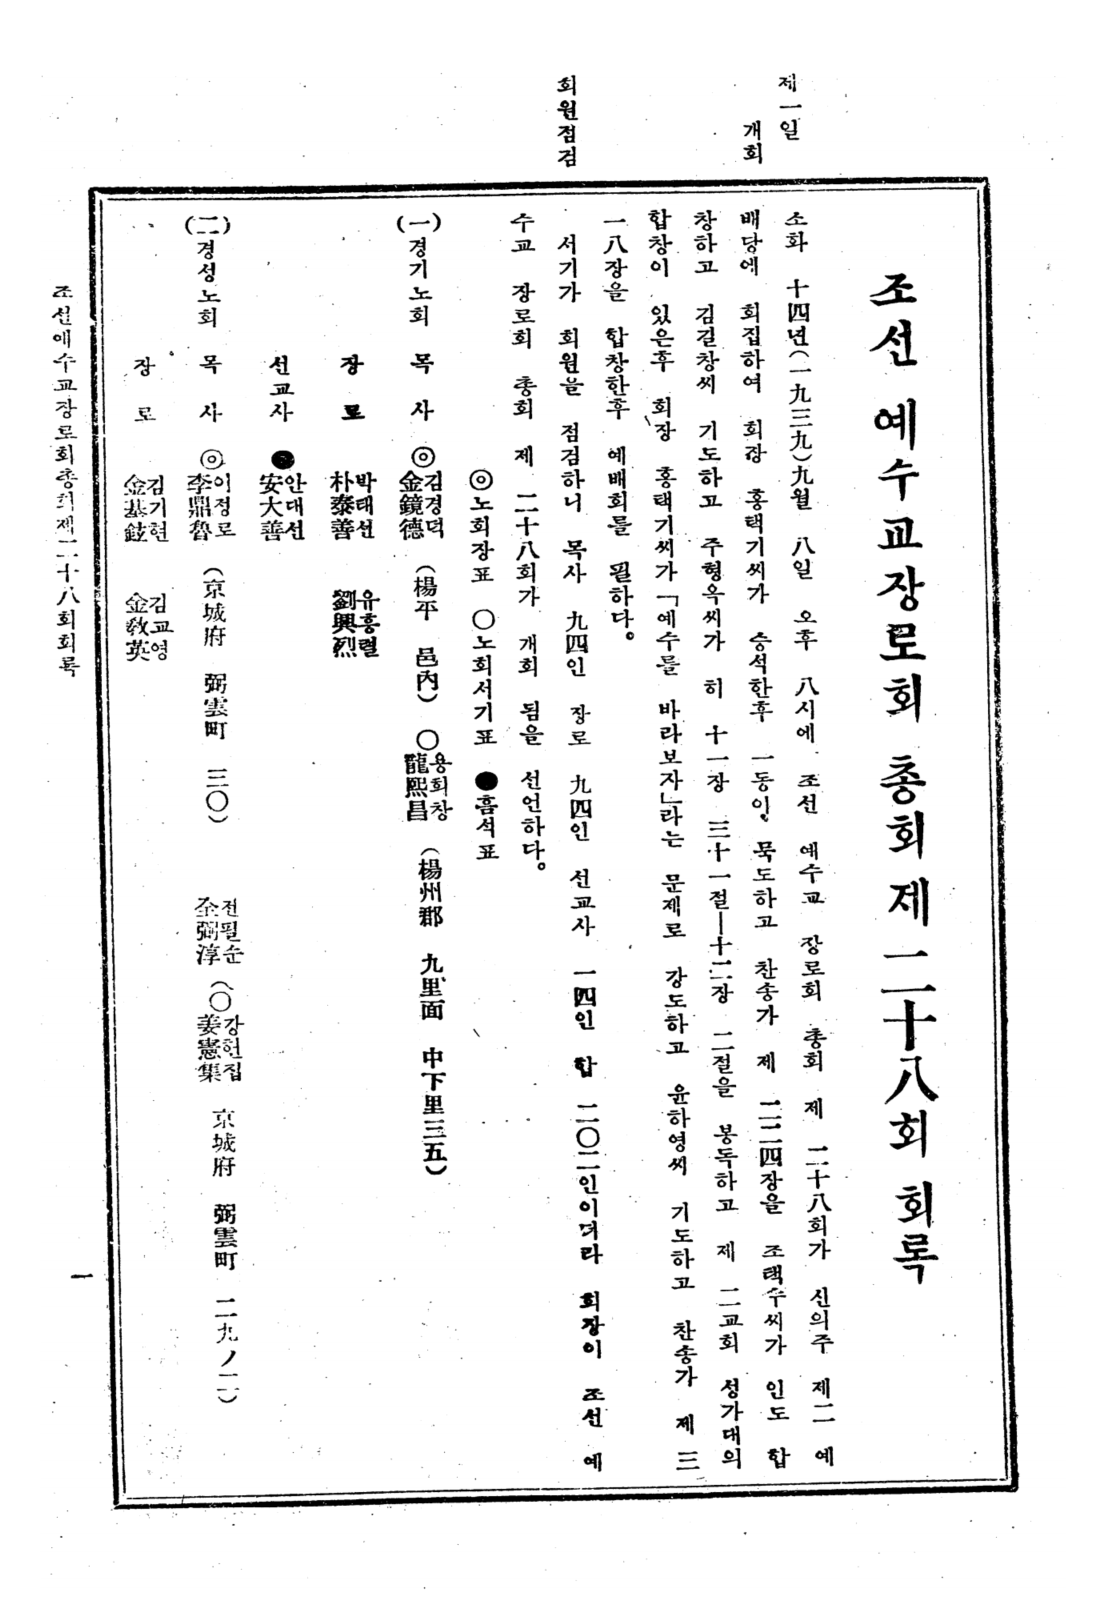 조선 예수교장로회 총회 제二十八회 회록
제一일
개회
소화 十四년(一九三九)九월 八일 오후 八시에 조선 예수교 장로회 총회 제 二十八회가 신의주 제二 예
배당에 회집하여 회장 홍택기씨가 승석한후 一동이 묵도하고 찬송가 제 二二四장을 조택수씨가 인도 합
창하고 김길창씨 기도하고 주형옥씨가 히 十一장 三十一절—十二장 二절을 봉독하고 제 二교회 성가대의
합창이 있은후 회장 홍택기씨가 「예수를 바라보자」라는 문제로 강도하고 윤하영씨 기도하고 찬송가 제 三
一八장을 합창한후 예배회를 필하다。
회원점검
서기가 회원을 점검하니 목사 九四인 장로 九四인 선교사 一四인 합 二〇二인이더라 회장이 조선 예
수교 장로회 총회 제 二十八회가 개회 됨을 선언하다。
◎노회장표 〇노회서기표 ●흠석표
(一)경기노회 목사 ◎김경덕 金鏡德 (楊平 邑內) 〇용희창 龍熙昌 (楊州郡 九里面 中下里三五)
장로 박태선 朴泰善 유흥렬 劉興烈
선교사 ●안대선 安大善
(二)경성노회 목사 ◎이정로 李鼎魯 (京城府 弼雲町 三〇) 전필순 全弼淳 (〇강헌집 姜憲集 京城府 弼雲町 二九ノ二)
장로 김기현 金基鉉 김교영 金敎英
조선예수교장로회총회제二十八회회록
一